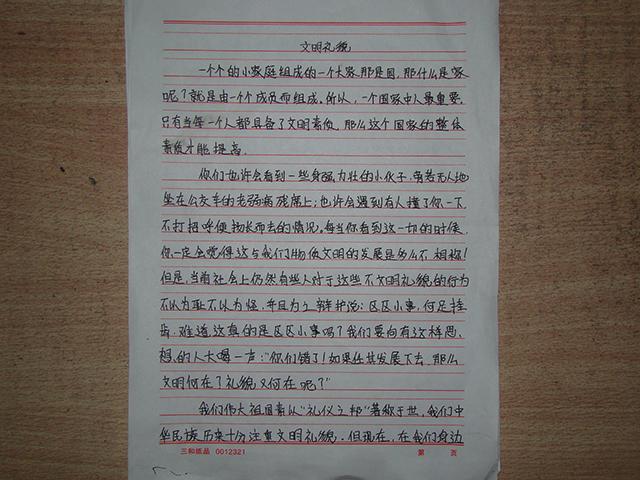 文明礼貌
一个个的小家庭组成的一个大家那是国,那什么是家
呢?就是由一个个成员而组成。所以,一个国家中人最重要,
只有当每一个人都具备了文明素质,那么这个国家的整体
素质才能提高.
你们也许会看到一些身强力壮的小伙子,旁若无人地
坐在公交车的老弱病残席上;也许会遇到有人撞了你一下,
不打招呼便扬长而去的情况。每当你看到这一切的时候,
你一定会觉得这与我们物质文明的发展是多么不相称!
但是,当前社会上仍然有些人对于这些不文明礼貌的行为
不以为耻不以为怪,并且为之辩护说:区区小事,何足挂
齿。难道这真的是区区小事吗?我们要向有这样思
想的人大喝一声:“你们错了!如果任其发展下去,那么
文明何在?礼貌又何在呢?”
我们伟大祖国素以“礼仪之邦”著称于世,我们中
华民族历来十分注重文明礼貌。但现在,在我们身边
三和纸品 0012321 第 页